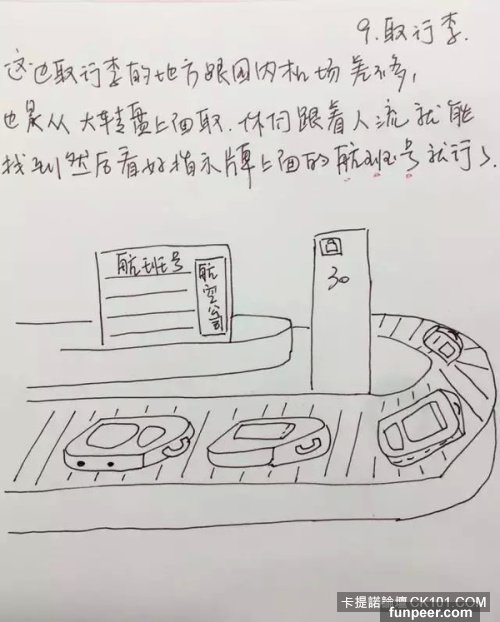 9.取行李.
这边取行李的地方跟国内机场差不多,
也是从大转盘上面取.你们跟着人流就能
找到然后看好指示牌上面的航班号就行了.
航班号
航空公司
30
卡提諾論壇 CK101.COM
funpeer.com